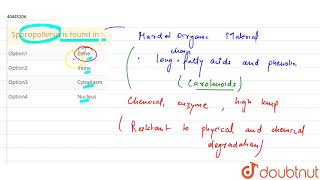 40465206
Sporopollenin is found in :-
Option1 Exine
Option2 Intine
Option3 Cytoplasm
Option4 Nucleus
Hardest Organic Material
chain
• long fatty acids and phenolic
(Carotenoids)
Chemical, enzyme, high temp
( Resistant to physical and chemical
degradation)
doubtnut